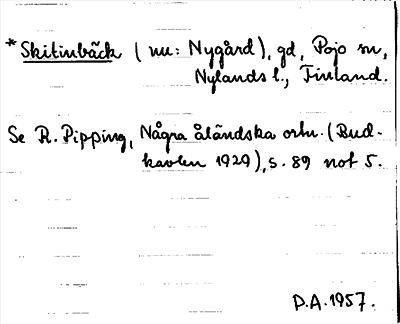 *Skitinbäck (nu: Nygård), gd, Pojo sn,
Nylands l., Finland.
Se R. Pipping, Några åländska ortn. (Bud-
kavlen 1929), s. 89 not 5.
P.A. 1957.